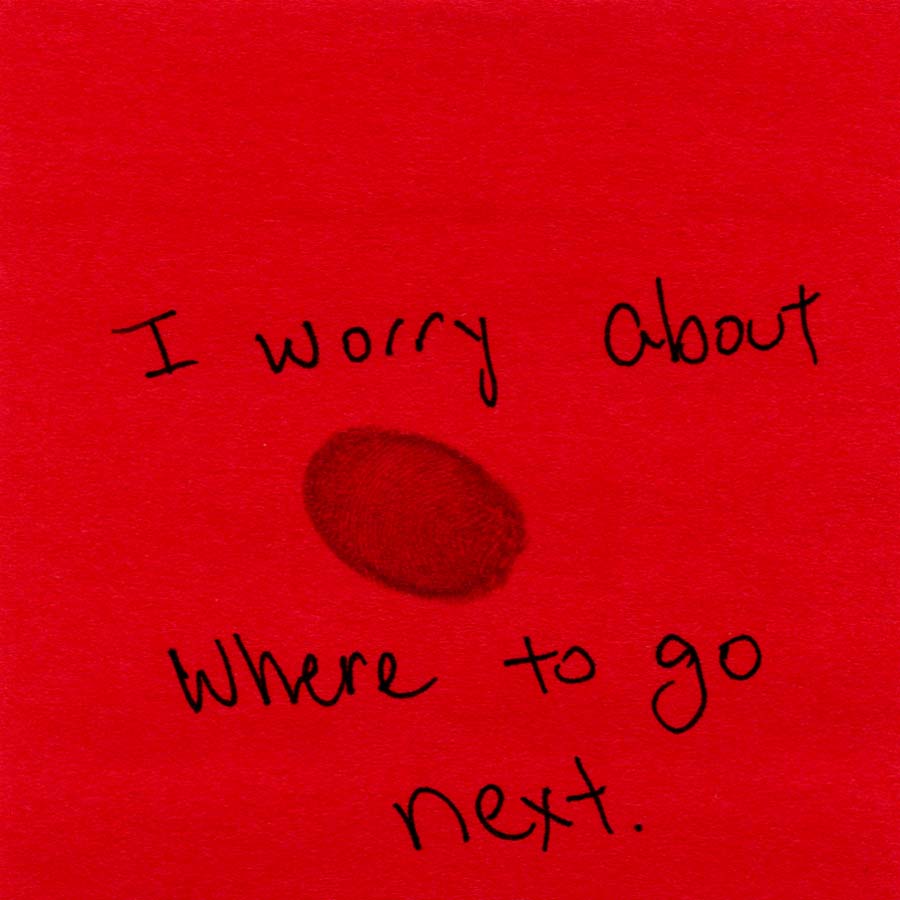 I worry about
Where to go
next.